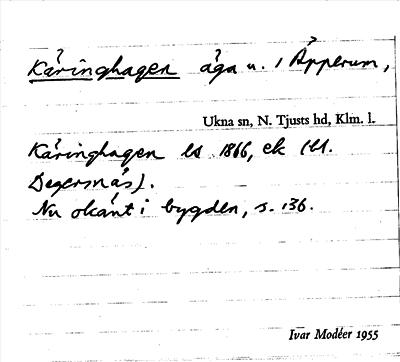 Käringhagen äga u. i Äpperum,
Ukna sn, N. Tjusts hd, Klm. l.
Käringhagen ls 1866, ek (t.
Degersnäs).
Nu okänt i bygden, s. 136.
Ivar Modéer 1955